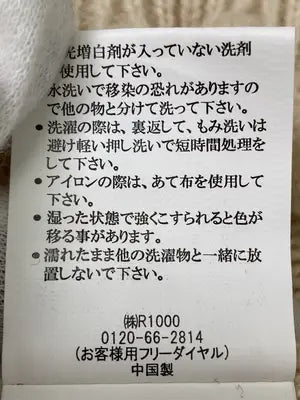 光増白剤が入っていない洗剤
使用して下さい。
水洗いで移染の恐れがありますの
で他の物と分けて洗って下さい。
●洗濯の際は、裏返して、もみ洗いは
避け軽い押し洗いで短時間処理を
して下さい。
●アイロンの際は、あて布を使用して
下さい。
●湿った状態で強くこすられると色が
移る事があります。
●濡れたまま他の洗濯物と一緒に放
置しないで下さい。
㈱R1000
0120-66-2814
(お客様用フリーダイヤル)
中国製